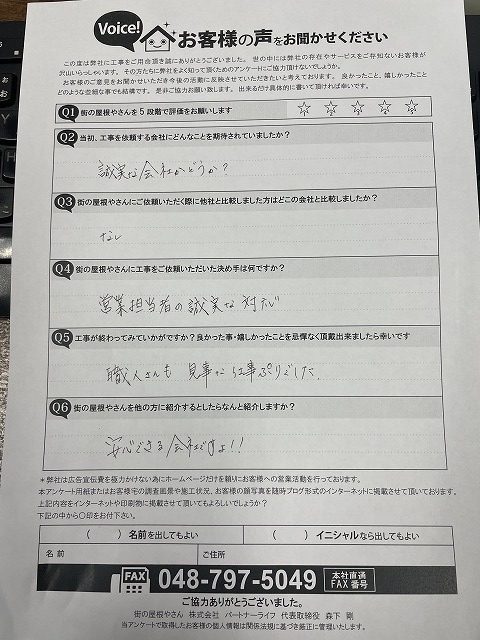 Voice!
お客様の声をお聞かせください
この度は弊社に工事をご用命頂き誠にありがとうございました。世の中には弊社の存在やサービスをご存知ないお客様が
沢山いらっしゃいます。その方たちに弊社をよく知って頂くためのアンケートにご協力頂けないでしょうか。
お客様のご意見をお聞かせいただき今後の活動に反映させていただきたいと考えております。良かったこと、嬉しかったこと
どのような些細な事でも結構です。是非ご協力お願い致します。出来るだけ具体的に書いて頂ければ幸いです。
Q1 街の屋根やさんを5段階で評価をお願いします ☆ ☆ ☆ ☆ ☆
Q2 当初、工事を依頼する会社にどんなことを期待されていましたか?
誠実な会社かどうか?
Q3 街の屋根やさんにご依頼いただく際に他社と比較しました方はどこの会社と比較しましたか?
なし
Q4 街の屋根やさんに工事をご依頼いただいた決め手は何ですか?
営業担当者の誠実な対応
Q5 工事が終わってみていかがですか?良かった事・嬉しかったことを忌憚なく頂戴出来ましたら幸いです
職人さんも 見事な工事ぶりでした.
Q6 街の屋根やさんを他の方に紹介するとしたらなんと紹介しますか?
安心できる会社ですよ!!
*弊社は広告宣伝費を極力かけない為にホームページだけを頼りにお客様への営業活動を行っております。
本アンケート用紙またはお客様宅の調査風景や施工状況、お客様の顔写真を随時ブログ形式のインターネットに掲載させて頂いております。
上記内容をインターネットや印刷物に掲載させて頂いてもよろしいでしょうか?
下記の中から〇印をお付け下さい。
( ) 名前を出してもよい ( ) イニシャルなら出してもよい
名前 ご住所
FAX 048-797-5049 本社直通 FAX番号
ご協力ありがとうございました。
街の屋根やさん 株式会社 パートナーライフ 代表取締役 森下 剛
当アンケートで取得したお客様の個人情報は関係法規に基づき厳正に管理いたします。